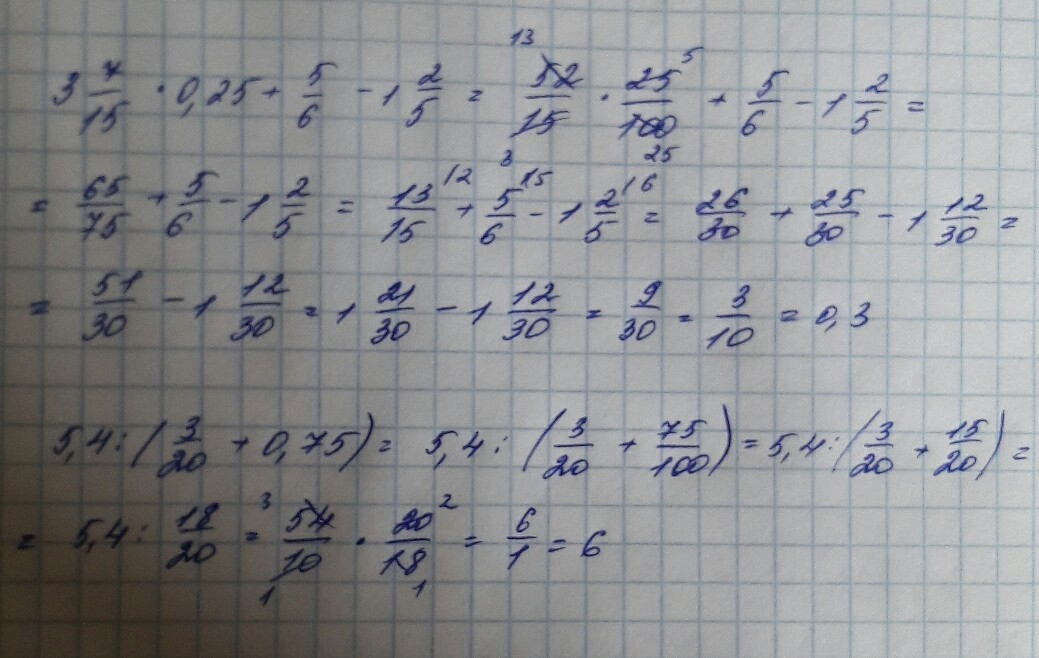 3 7/15 · 0,25 + 5/6 - 1 2/5 = 52/15 · 25/100 + 5/6 - 1 2/5 =
= 65/75 + 5/6 - 1 2/5 = 13/15 + 5/6 - 1 2/5 = 26/30 + 25/30 - 1 12/30 =
= 51/30 - 1 12/30 = 1 21/30 - 1 12/30 = 9/30 = 3/10 = 0,3
5,4 : (3/20 + 0,75) = 5,4 : (3/20 + 75/100) = 5,4 : (3/20 + 15/20) =
= 5,4 : 18/20 = 54/10 · 20/18 = 6/1 = 6